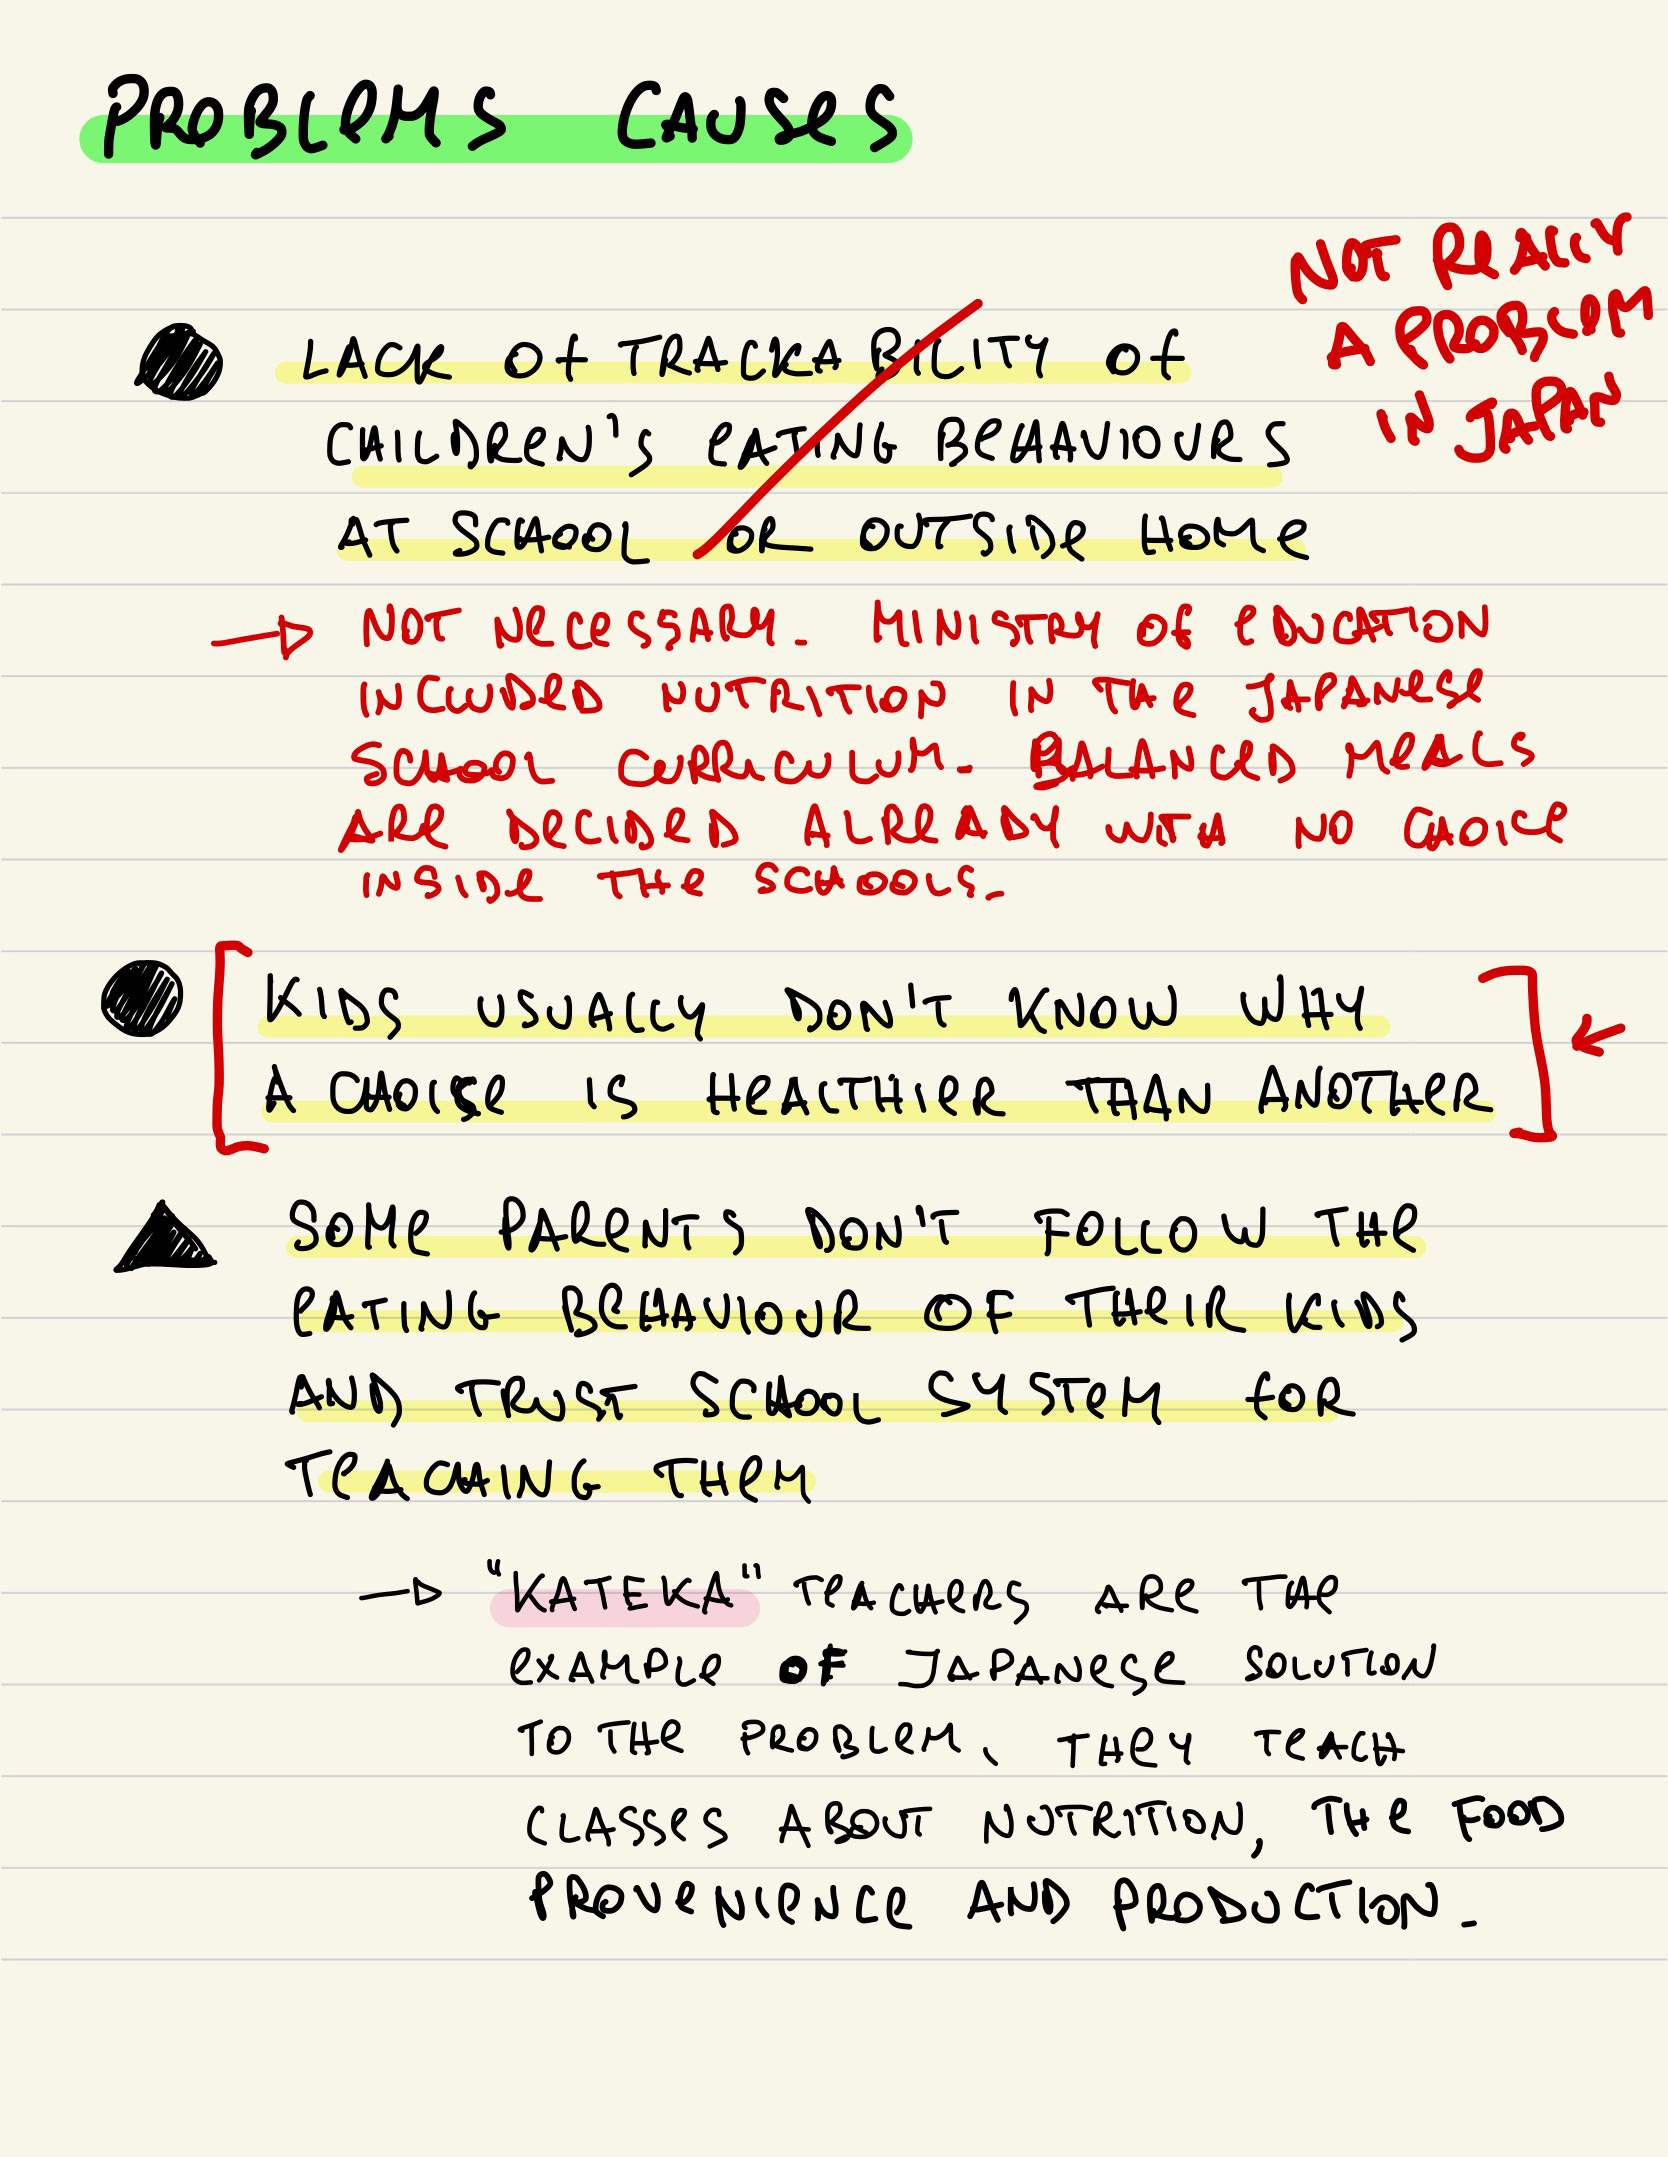 PROBLEMS CAUSES
NOT REALLY
A PROBLEM
IN JAPAN
LACK Of TRACKABILITY Of
CHILDREN'S EATING BEHAVIOURS
AT SCHOOL OR OUTSIDE HOME
→ NOT NECESSARY. MINISTRY Of EDUCATION
INCLUDED NUTRITION IN THE JAPANESE
SCHOOL CURRICULUM. BALANCED MEALS
ARE DECIDED ALREADY WITH NO CHOICE
INSIDE THE SCHOOLS.
[KIDS USUALLY DON'T KNOW WHY
A CHOISE IS HEALTHIER THAN ANOTHER] ←
SOME PARENTS DON'T FOLLOW THE
EATING BEHAVIOUR OF THEIR KIDS
AND TRUST SCHOOL SYSTEM fOR
TEACHING THEM
→ "KATEKA" TEACHERS ARE THE
EXAMPLE OF JAPANESE SOLUTION
TO THE PROBLEM, THEY TEACH
CLASSES ABOUT NUTRITION, THE FOOD
PROVENIENCE AND PRODUCTION.